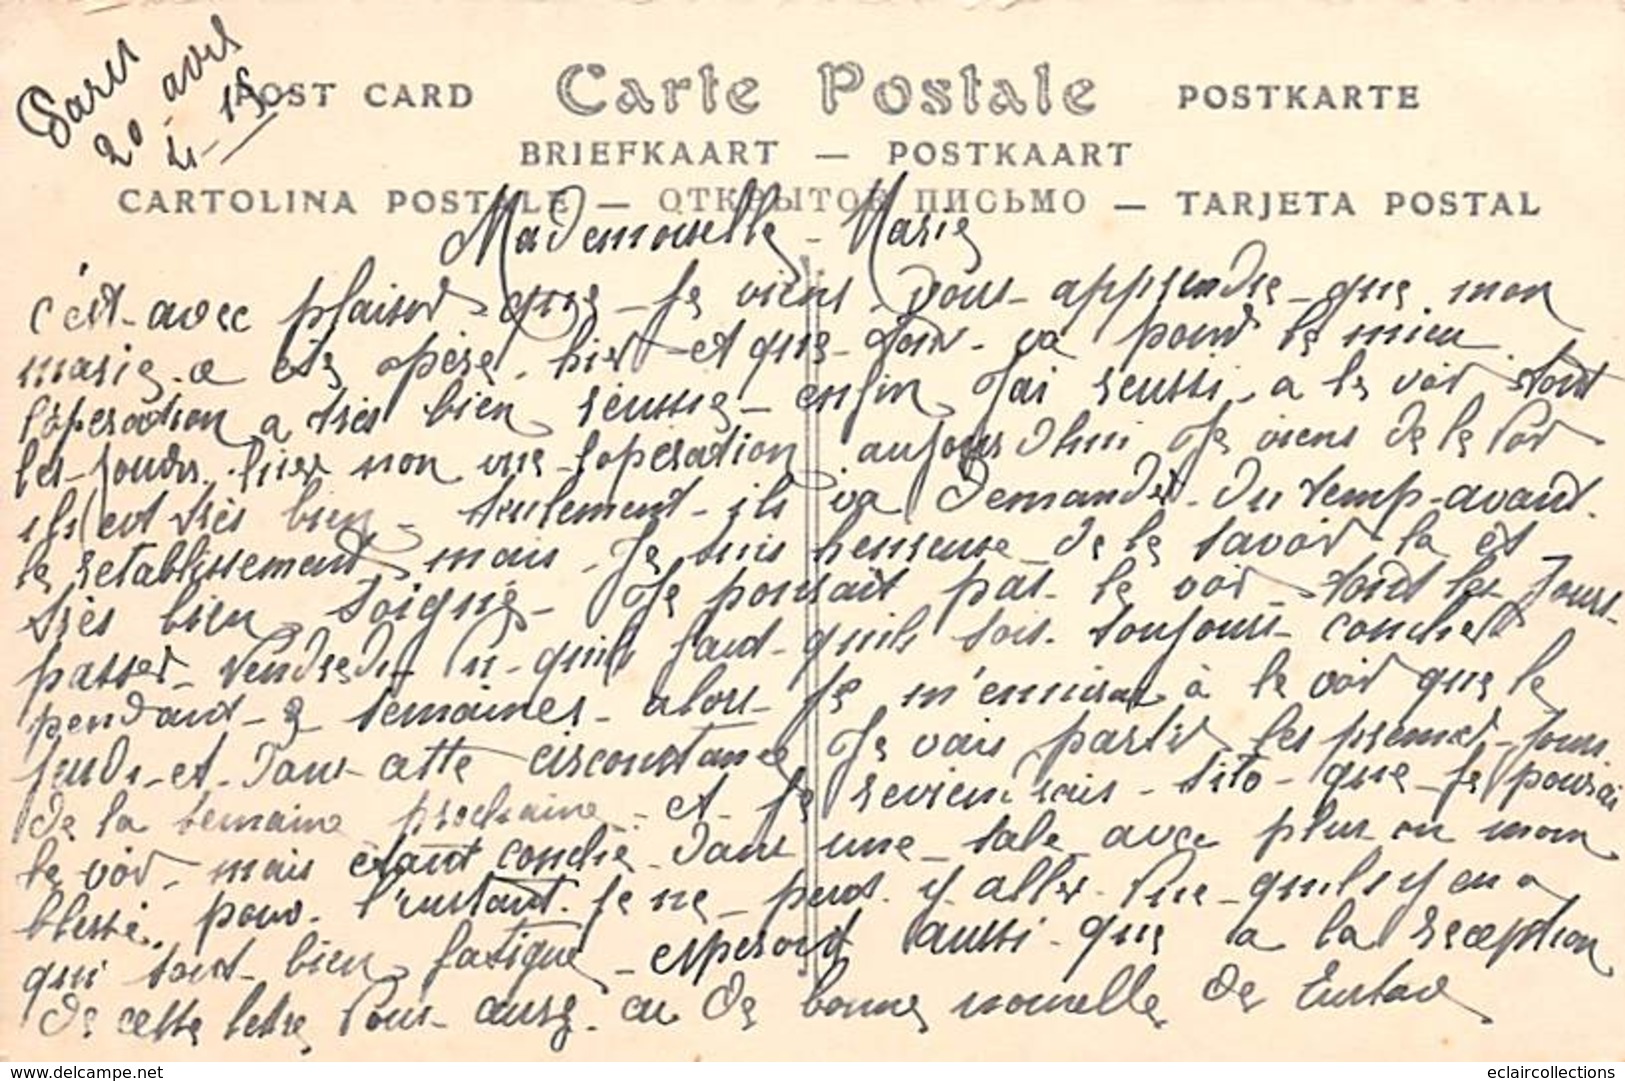 Paris
20 avril
4-15
POST CARD Carte Postale POSTKARTE
BRIEFKAART — POSTKAART
CARTOLINA POSTALE — ОТКРЫТОЕ ПИСЬМО — TARJETA POSTAL
Mademoiselle - Marie
c'est avec plaisir que je viens vous apprendre que mon
marie a etè opèrè hier et que tout va pour le mieu
l'opèration a très bien réussie enfin J'ai réussi a le voir tout
les jours hier non vue l'opération aujours dhui Je viens de le voir
ils est très bien seulement ils va demander du temp avant
le rétablissement mais Je suis heureuse de le savoir la et
très bien soigné Je pourait pas le voir tout les Jours
passer vendredi qu'ils faut qu'ils sois toujours couchert
pendant 2 semaines alors je à le voir que le
jeudi et dans cette circonstance Je vais partir les premier jours
de la semaine prochaine et je reviendrais sito que je pourai
le voir mais étant couché dans une sale avec plus ou moin
blessé pour l'instant je ne peut y aller vue qu'ils y en a
qui sont bien fatigué esperont aussi que a la reception
de cette letre vous aurez eu de bonne nouvelle de Eustave
delcampe.net
eclaircollections